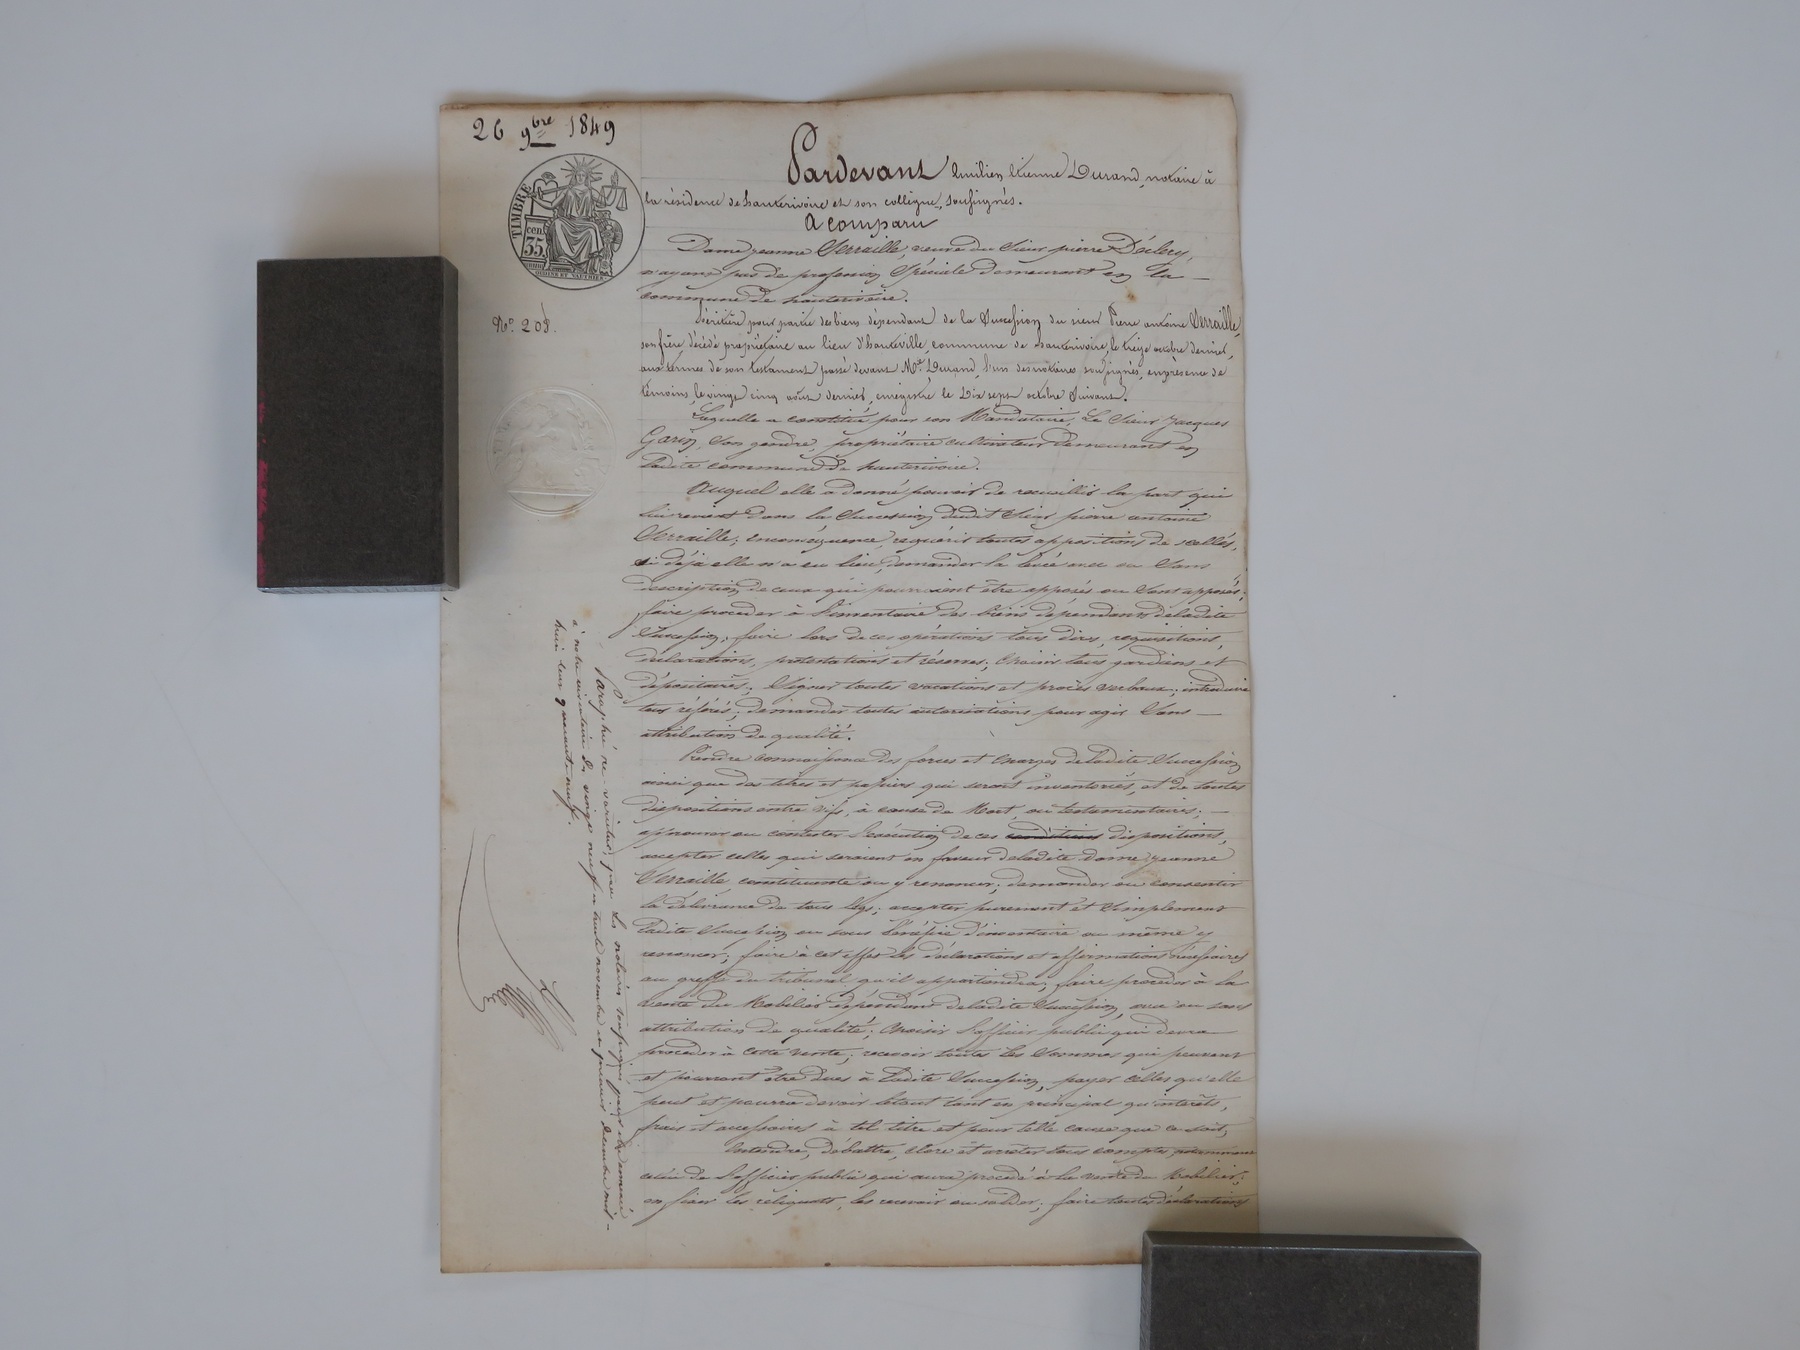 26 9bre 1849
TIMBRE
cen.
35
Nº 208.
Pardevant Emilien Etienne Durand, notaire à
la résidence de hauterivoire et son collègue, soussignés.
A comparu
Dame jeanne Verraille, veuve du Sieur pierre Décléry,
n'ayant pas de profession Spéciale demeurant en la
commune de hauterivoire.
héritière pour partie des biens dépendant de la Succession du sieur Pierre antoine Verraille,
son frère, décédé propriétaire au lieu d'hauteville, commune de hauterivoire, le treize octobre dernier,
aux termes de son testament passé devant Me Durand, l'un des notaires soussignés, en présence de
témoins, le vingt cinq août dernier, enregistré le Dix sept octobre Suivant.
Laquelle a constitué pour son Mandataire, Le Sieur Jacques
Garin, Son gendre, propriétaire cultivateur demeurant en
Ladite commune de hauterivoire.
Auquel elle a donné pouvoir de recueillir la part qui
lui revient dans la Succession dudit Sieur pierre antoine
Verraille; en conséquence, requérir toutes appositions de scellés,
si déjà elle n'a eu lieu, demander la levée avec ou Sans
description de ceux qui pourraient être apposés ou Sont apposés;
faire procéder à L'inventaire des biens dépendant de ladite
Succession; faire lors de ces opérations tous dires, requisitions,
déclarations, protestations et réserves; choisir tous gardiens et
dépositaires; Signer toutes vacations et procès verbaux; introduire
tous référés; demander toutes autorisations pour agir Sans
attribution de qualité.
Prendre connaissance des forces et charges de ladite Succession
ainsi que des titres et papiers qui seront inventoriés, et de toutes
dispositions entre vifs, à cause de Mort, ou testamentaires;
approuver ou contester L'exécution de ces conditions dispositions,
accepter celles qui seraient en faveur de ladite dame jeanne
Verraille, constituante ou y renoncer; demander ou consentir
la délivrance de tous legs; accepter purement et Simplement
Ladite Succession ou sous bénéfice d'inventaire ou même y
renoncer; faire à cet effet les déclarations et affirmations nécessaires
au greffe du tribunal qu'il appartiendra; faire procéder à la
vente du Mobilier dépendant de ladite Succession, avec ou sans
attribution de qualité; choisir L'officier public qui devra
procéder à cette vente; recevoir toutes Les Sommes qui peuvent
et pourront être dues à Ladite Succession, payer celles qu'elle
peut et pourra devoir Letout tant en principal qu'intérêts,
frais et accessoires à tel titre et pour telle cause que ce soit,
Entendre, débattre, clore et arrêter tous comptes notamment
celui de L'officier public qui aura procédé à la vente du Mobilier;
en fixer les reliquats, les recevoir ou solder; faire toutes déclarations
Paraphé ne varietur, par Les notaires soussignés, pour être annexé
à notre inventaire des vingt neuf et trente novembre et premier Décembre mil
huit cent quarante neuf.